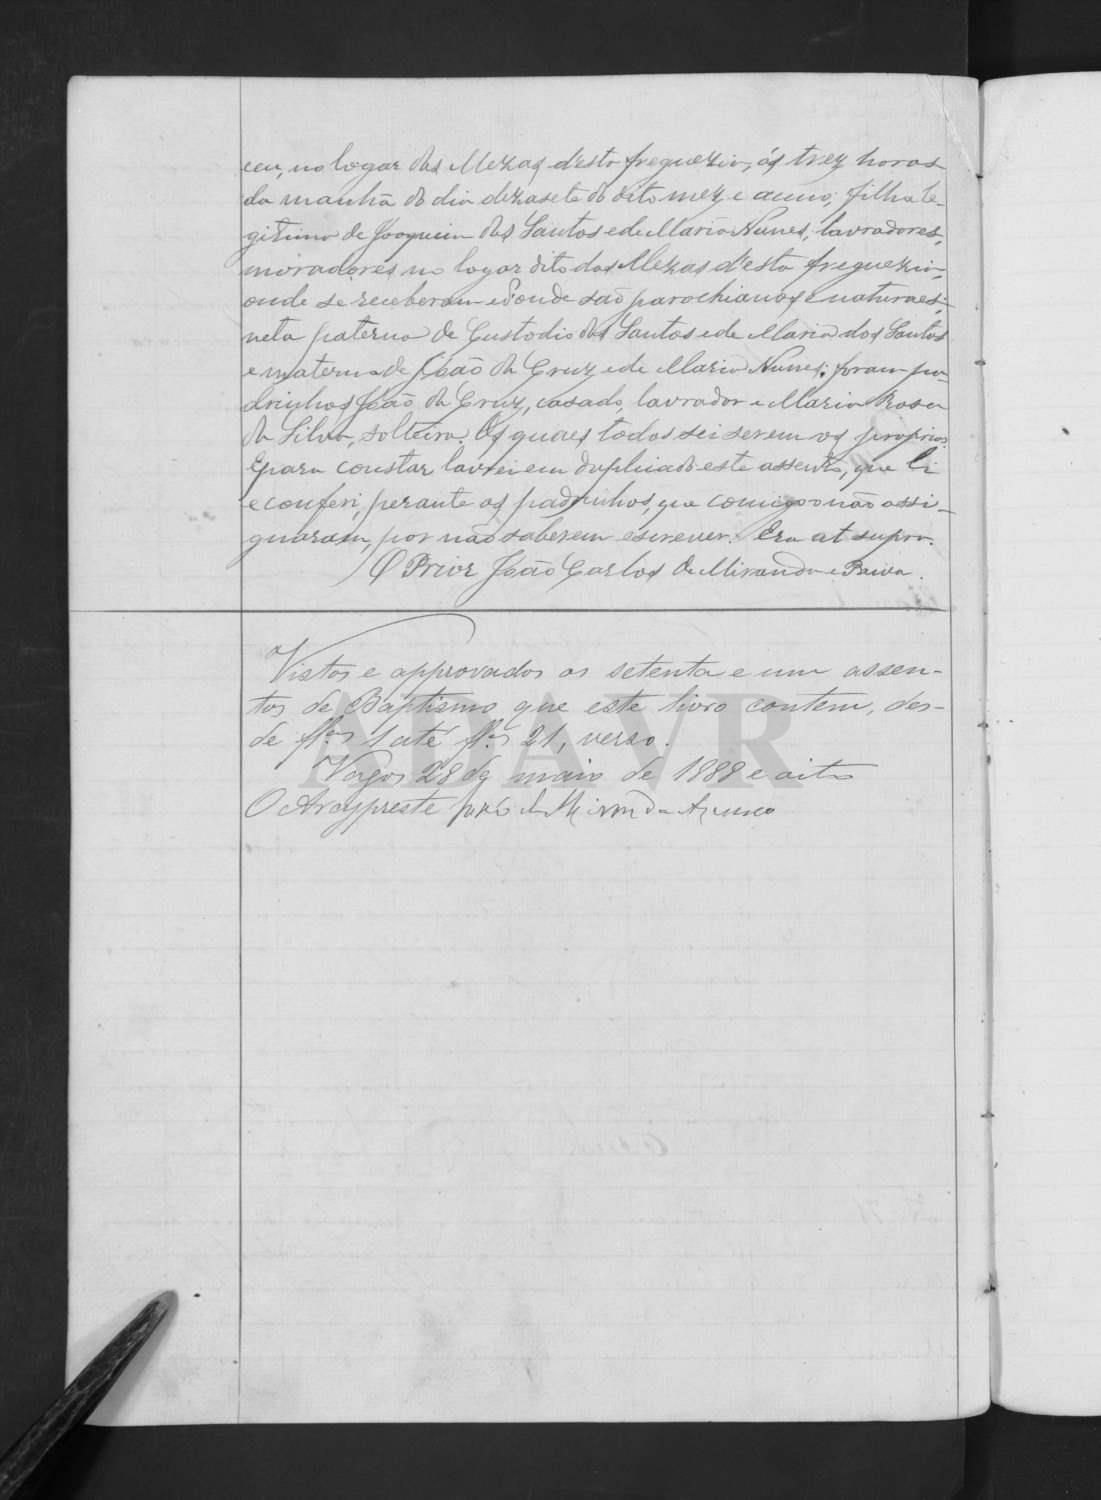 ceu, no logar das Mezas d'esta freguezia, ás trez horas
da manhã do dia dezasete do dito mez e anno; filha le-
gitima de Joaquim dos Santos e de Maria Nunes, lavradores,
moradores no logar dito das Mezas d'esta freguezia,
onde se receberam e d'onde são parochianos e naturaes;
neta paterna de Custodio dos Santos e de Maria dos Santos
e materna de João da Cruz e de Maria Nunes: foram pa-
drinhos João da Cruz, casado, lavrador e Maria Rosa
da Silva, solteira. Os quaes todos sei serem os proprios.
E para constar lavrei em duplicado este assento, que li
e conferi, perante os padrinhos, que comigo não assi-
gnaram, por não saberem escrever. Era ut supra.
O Prior João Carlos de Miranda e Paiva.
Vistos e approvados os setenta e um assen-
tos de Baptismo que este livro contem, des-
de fl.as 1 até fl.as 21, verso.
Vagos 28 de maio de 1888 e oito
O Arcypreste José de Miranda
ADAVR